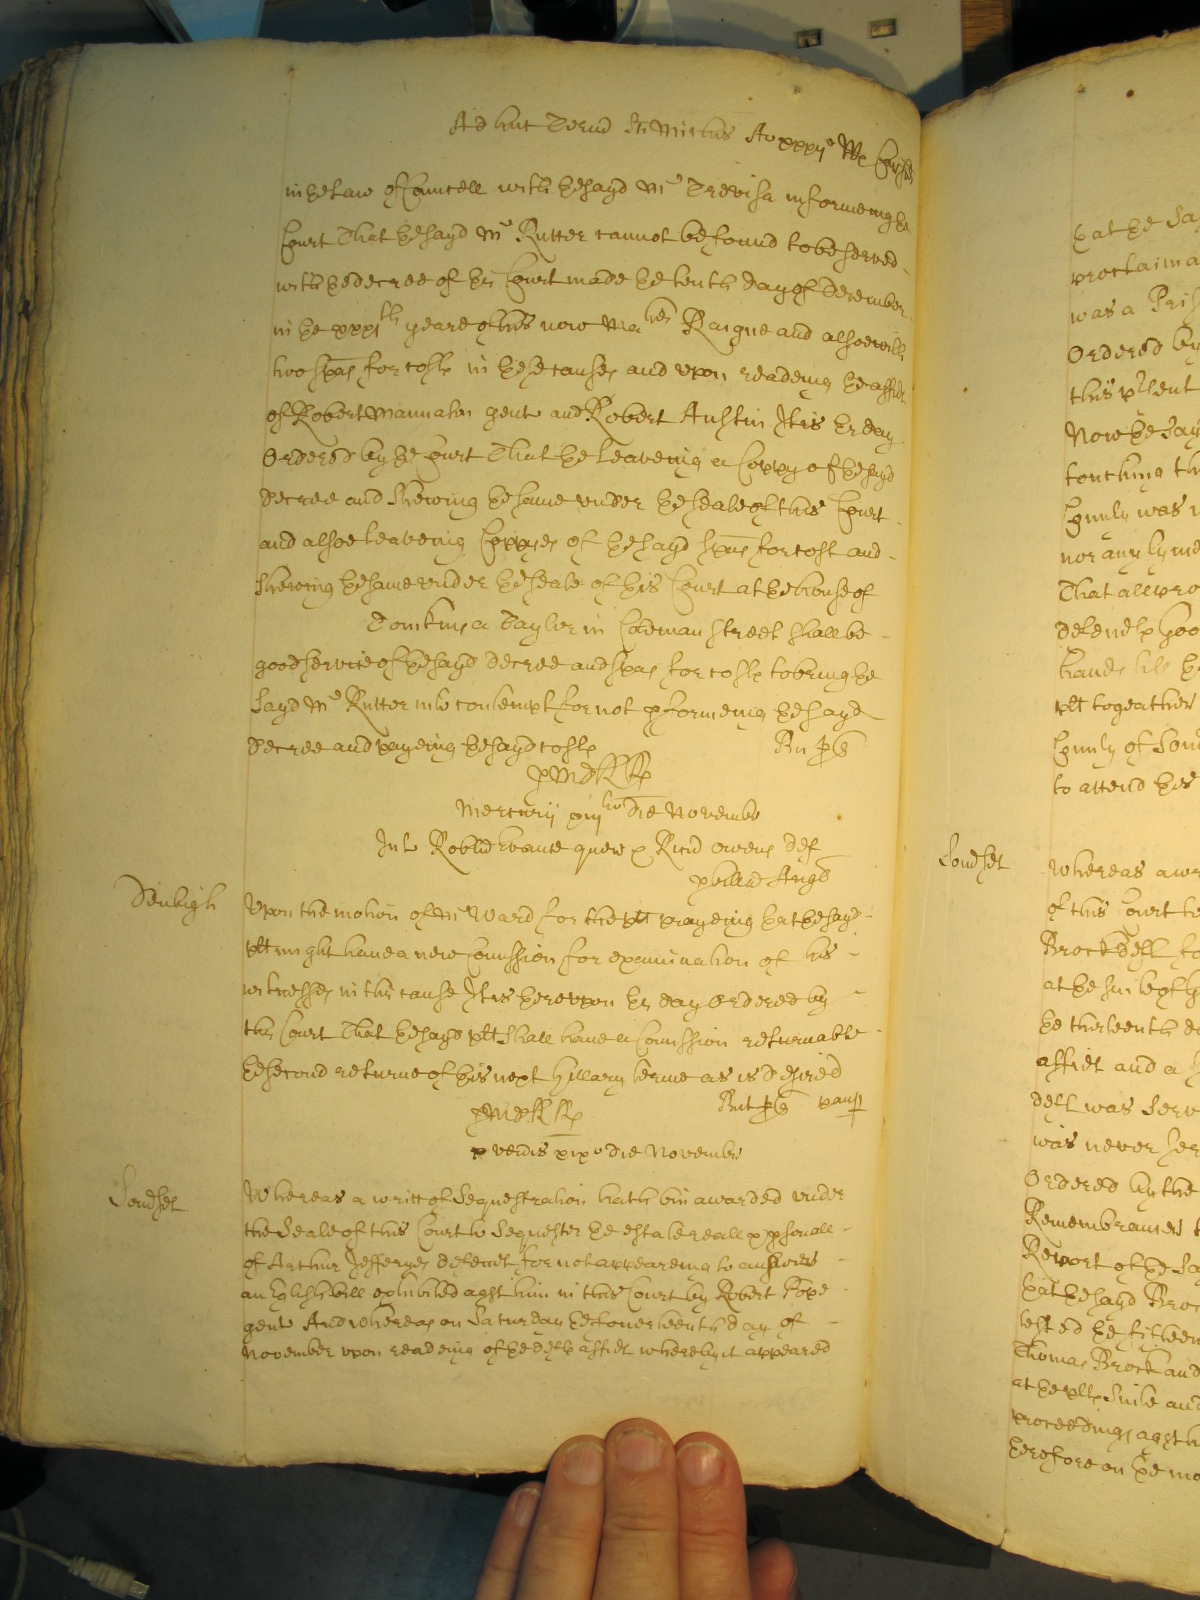 Ad huc Termi Sci Michis Ao xxxijo Rx
in the Law of Councell with the sayd Mr Trevisa informeing the
Court That the sayd Mr Rutter cannot be found to be served
with the decree of this Court made the tenth day of December
in the xxxjth yeare of his now Mates Raigne and alsoe with
two spas for costs in these causes and upon readeing the affidt
of Robert Mannaton gent and Robert Austin It is this day
Ordered by the Court That the leaveing a Coppy of the sayd
decree and Shewing the same under the seale of this Court
and alsoe leaveing Coppyes of the sayd spas for cost and
Shewing the same under the seale of this Court at the house of
Tomkins a Taylor in Cadman Street Shall be
good service of the sayd decree and spas for costs to bring the
Sayd Mr Rutter into contempt for not pformeing the sayd
decree and payeing the sayd costs
Mercurij xiijtio die Novembr
Int Robtu Evance quer & Ricu Owens def
p billa Angl
Denbigh
Upon the motion of Mr Ward for the plt prayeing that the sayd
plt might have a new Comission for examination of his
witnesses in this cause It is thereupon this day Ordered by
this Court That the sayd plt Shall have a Comission returnable
the second returne of this next Hillary terme as is desired
Veneris xixo die Novembr
Somset
Whereas a writt of Sequestration hath bin awarded under
the Seale of this Court to Sequester the estate reall & psonall
of Arthur Jefferyes defendt for not appeareing to answere
an English bill exhibited agst him in this Court by Robert Pope
gent And whereas on Saturday the fourteenth day of
November upon readeing of the defts affidt whereby it appeared
that the Sa
proclaima
was a Pris
Ordered by
this psent
Now the Say
touching th
County was
nor any
That all pro
defendts goo
hands till th
plt togeather
County of Som
to attend this
Somset
Whereas a wr
of this Court
Brock
at the suite of
the thirteenth d
affidt and a
deft was Serv
was never Ser
Ordered by the
Remembrancer
Report of the Sa
that the sayd Broc
tested the fifteen
Thomas Brock and
at the plts Suite and
proceedings agst h
therefore on the mo